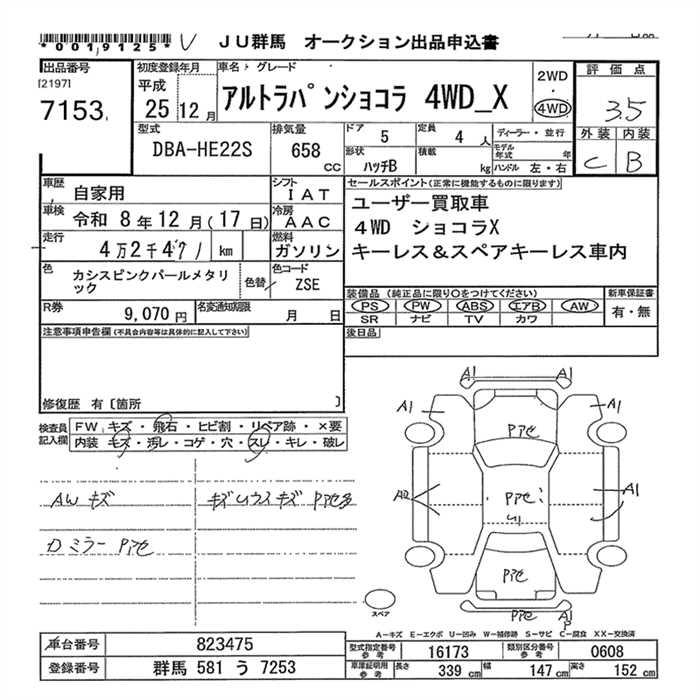 *0019125* ＪＵ群馬 オークション出品申込書
出品番号 初度登録年月 車名・グレード 評価点
[2197]
7153 平成 25 12月 アルトラパンショコラ 4WD_X 2WD 4WD 3.5
型式 排気量 ドア 5 定員 4人 ディーラー・並行 外装 内装
DBA-HE22S 658 CC 形状 ハッチB 積載 kg モデル年式 年 ハンドル 左・右 C B
車歴 自家用 シフト ＩＡＴ セールスポイント(正常に機能するものに限ります)
車検 令和 8年12月(17日) 冷房 ＡＡＣ ユーザー買取車
走行 4万2千 km 燃料 ガソリン 4WD ショコラX
キーレス＆スペアキーレス車内
色 カシスピンクパールメタリック 色替 色コード ZSE
装備品 (純正品に限り○をつけてください) 新車保証書
R券 9,070円 名変通知期限 月 日 PS PW ABS エアB AW 有・無
SR ナビ TV カワ
注意事項申告欄(不具合内容等は具体的に記入して下さい) 後日品
修復歴 有〔箇所 〕
検査員記入欄 FW キズ・飛石・ヒビ割・リペア跡・×要
内装 キズ・汚レ・コゲ・穴・スレ・キレ・破レ
AWキズ
Dミラー Pアセ
A1 A1
A1 A1
Pアセ
A2 Pアセ A1
Pアセ
Pアセ A1 P
スペア
A－キズ E－エクボ U－凹み W－補修跡 S－サビ C－腐食 XX－交換済
車台番号 823475 型式指定番号 参考 16173 類別区分番号 参考 0608
登録番号 群馬 581 う 7253 車庫証明用 参考 長さ 339 cm 幅 147 cm 高さ 152 cm